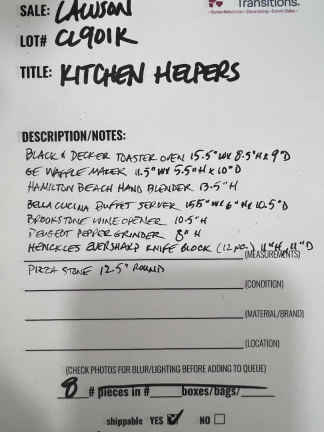 Transitions.
SALE: LAWSON
LOT# CL901K
TITLE: KITCHEN HELPERS
DESCRIPTION/NOTES:
BLACK & DECKER TOASTER OVEN 15.5"W X 8.5"H X 9"D
GE WAFFLE MAKER 11.5"W X 5.5"H X 10"D
HAMILTON BEACH HAND BLENDER 13.5"H
BELLA CUCINA BUFFET SERVER 15.5"W X 6"H X 10.5"D
BROOKSTONE WINE OPENER 10.5"H
PEUGEOT PEPPER GRINDER 8"H
HENCKLES EVERSHARP KNIFE BLOCK (12 pc.) 11"H, 11"D
(MEASUREMENTS)
PIZZA STONE 12.5" ROUND
(CONDITION)
(MATERIAL/BRAND)
(LOCATION)
(CHECK PHOTOS FOR BLUR/LIGHTING BEFORE ADDING TO QUEUE)
8 # pieces in # boxes/bags/
shippable YES NO